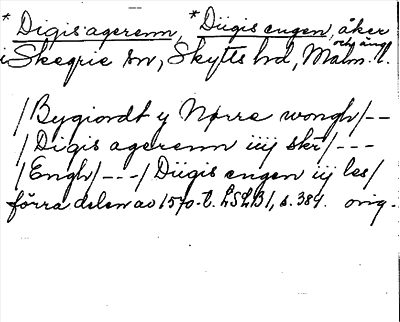 * Digis agerenn, * Diigis engen, åker
och äng
i Skegrie sn, Skytts hd, Malm. l.
/Bygiordt y Nørre wongh/--
/Digis agerenn iiij skr/---
/Engh/---/Diigis engen iij les/
förra delen av 1570-t. LSLB1, s. 384. orig.